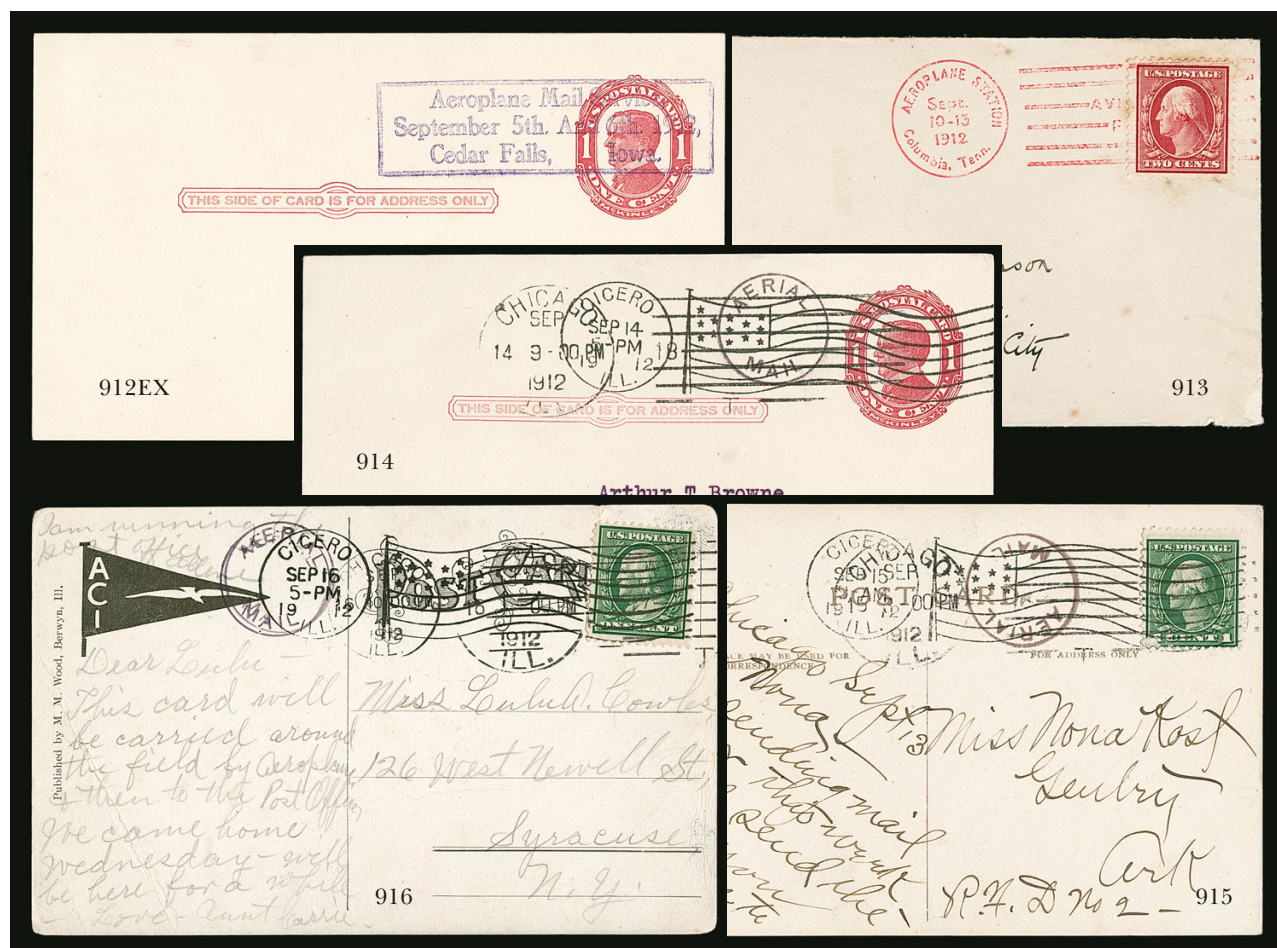 Aeroplane Mail Service
September 5th. And 6th. 1912,
Cedar Falls, Iowa.
U.S. POSTAL CARD
1 1
ONE CENT
McKINLEY
THIS SIDE OF CARD IS FOR ADDRESS ONLY
912EX
AEROPLANE STATION
Sept.
10-13
1912
Columbia, Tenn.
AVI
U.S. POSTAGE
TWO CENTS
City
913
CHICAGO
SEP
14 9-00 PM
1912
ILL.
CICERO
SEP 14
5-PM
19 12
ILL.
AERIAL
MAIL
U.S. POSTAL CARD
1
ONE CENT
McKINLEY
THIS SIDE OF CARD IS FOR ADDRESS ONLY
Arthur T Browne
914
I am winning the
ACI
Published by M. M. Wood, Berwyn, Ill.
AERIAL
MAIL
CICERO
SEP 16
5-PM
19 12
ILL.
POST CARD
1912
ILL.
1912
ILL.
U.S. POSTAGE
ONE CENT
Dear Lulu –
This card will
be carried around
the field by Aeroplane
& then to the Post Office
We came home
Wednesday – will
be here for a while
– Love – Aunt Carrie
Miss Lulu A. Cowles,
126 West Newell St,
Syracuse,
N. Y.
916
CICERO
SEP 15
19 12
ILL.
CHICAGO
SEP
1912
ILL.
AERIAL
MAIL
POST CARD
U.S. POSTAGE
1 CENT 1
ACE MAY BE USED FOR
ORRESPONDENCE
FOR ADDRESS ONLY
Chicago Sept 13
Nona
sending mail
this week
send the
Miss Nona Kost
Gentry
Ark
R. F. D No 2 –
915